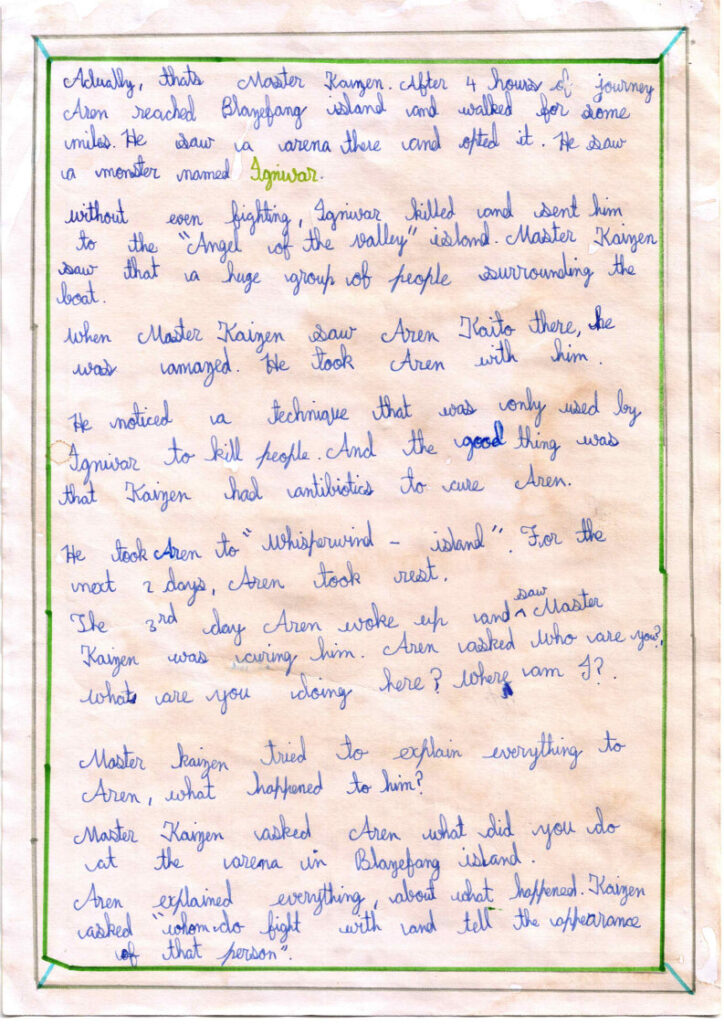 Actually, thats Master Kaizen. After 4 hours of journey
Aren reached Blazefang island and walked for some
miles. He saw a arena there and opted it. He saw
a monster named Igniwar.
without even fighting, Igniwar killed and sent him
to the "Angel of the valley" island. Master Kaizen
saw that a huge group of people surrounding the
boat.
when Master Kaizen saw Aren Kaito there, he
was amazed. He took Aren with him.
He noticed a technique that was only used by
Igniwar to kill people. And the good thing was
that Kaizen had antibiotics to cure Aren.
He took Aren to "Whisperwind - island". For the
next 2 days, Aren took rest.
The 3rd day Aren woke up and saw Master
Kaizen was curing him. Aren asked who are you?,
whats are you doing here? where am I?.
Master kaizen tried to explain everything to
Aren, what happened to him?
Master Kaizen asked Aren what did you do
at the arena in Blazefang island.
Aren explained everything, about what happened. Kaizen
asked "whom do fight with and tell the appearance
of that person".